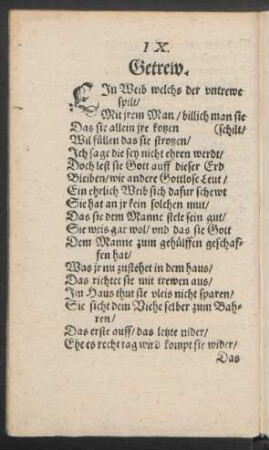 IX.
Getrew.
EIn Weib welchs der vntrewe
spilt/
Mit jrem Man/ billich man sie
Das sie allein jre kotzen (schilt/
Wil füllen das sie strotzen/
Ich sage die sey nicht ehren werdt/
Doch lest sie Gott auff dieser Erd
Bleiben/ wie andere Gottlose Leut/
Ein ehrlich Weib sich dafur schewt
Sie hat an jr kein solchen mut/
Das sie dem Manne stele sein gut/
Sie weis gar wol/ vnd das sie Gott
Dem Manne zum gehülffen geschaf-
fen hat/
Was jr nu zustehet in dem haus/
Das richtet sie mit trewen aus/
Im Haus thut sie vleis nicht sparen/
Sie sicht dem Viehe selber zum Bah-
ren/
Das erste auff/ das letzte nider/
Ehe es recht tag wird kompt sie wider/
Das